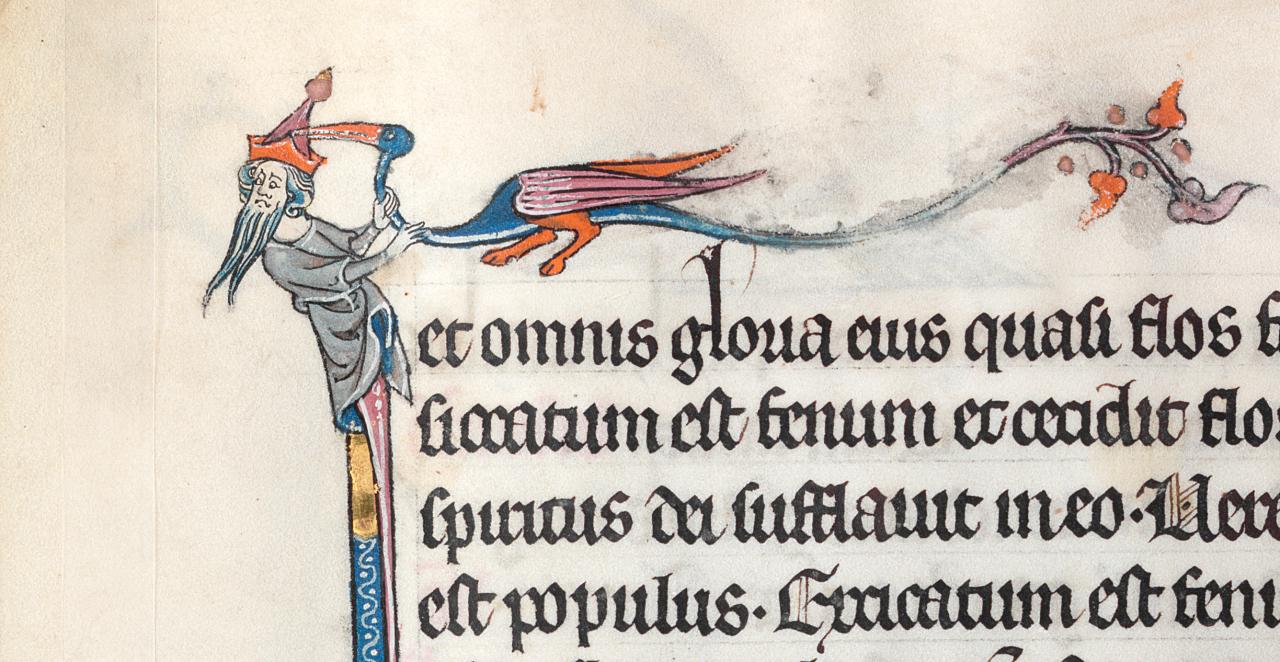 et omnis gloria eius quasi flos
siccatum est fenum et cecidit flos
spiritus dei sufflauit in eo. Uere
est populus. Exicatum est fenu